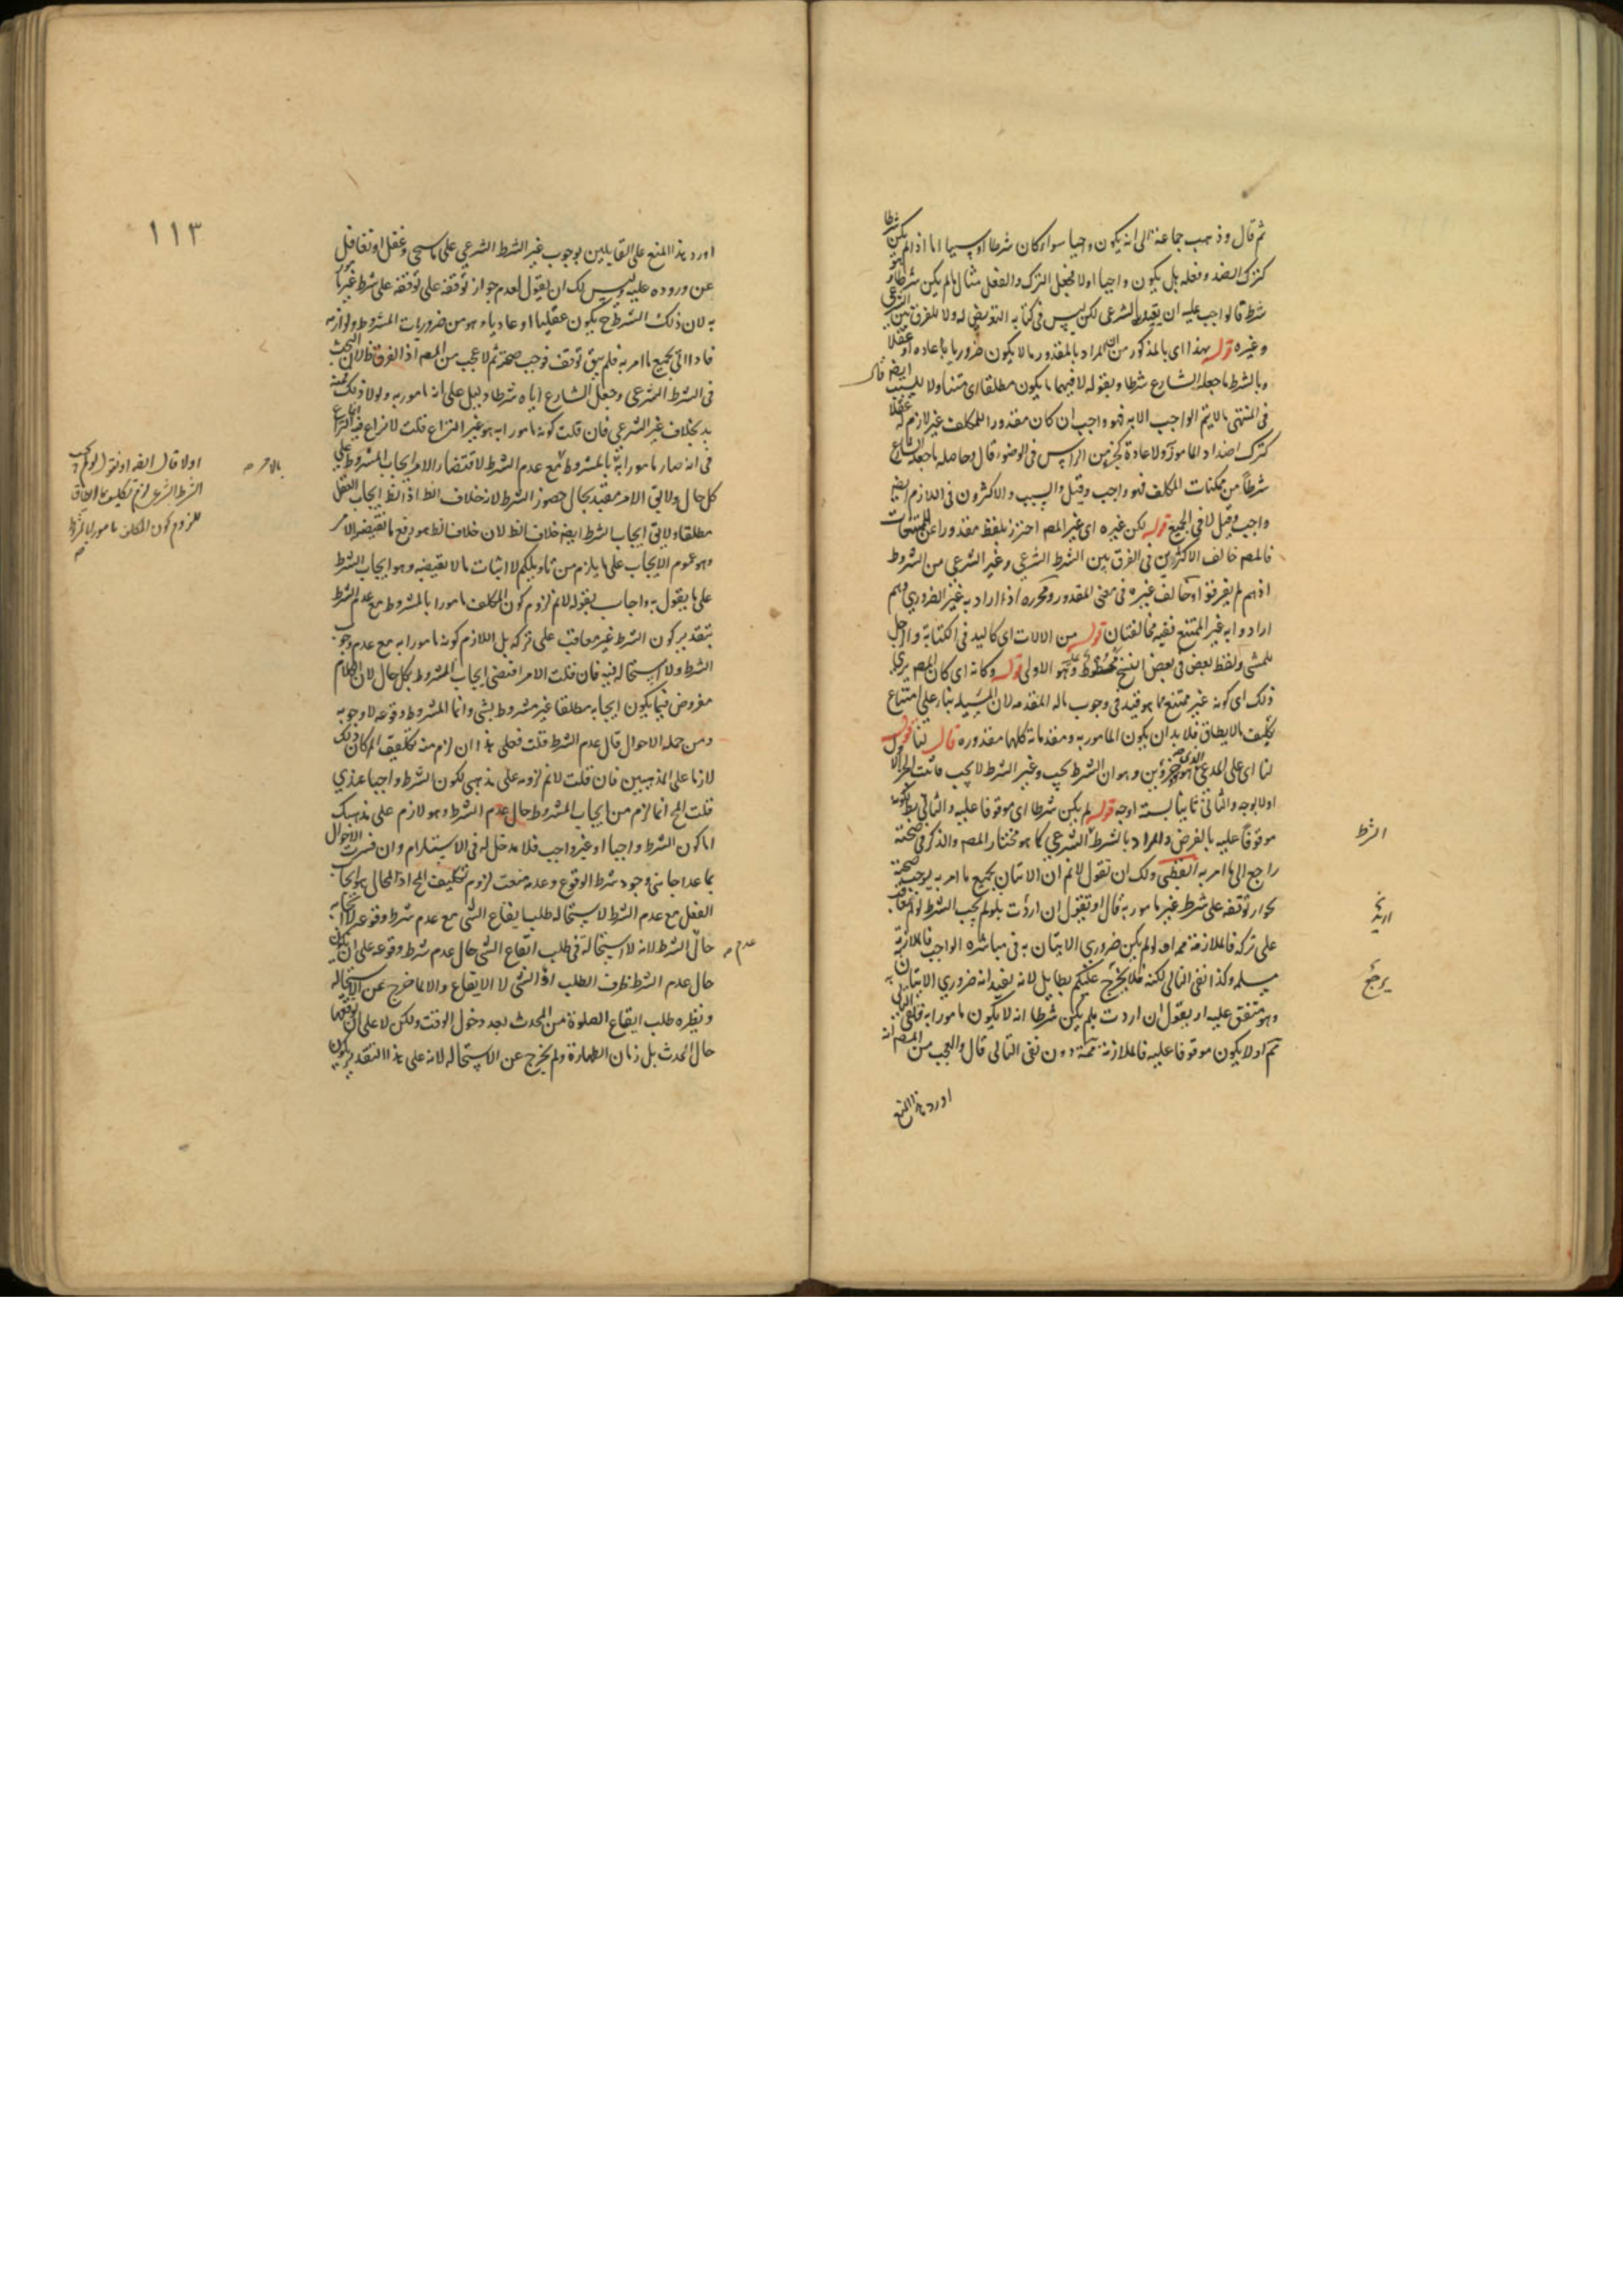 ثم قال وذهب جماعة الى انه يكون واجبا سواء كان شرطا او سببا اما اذا لم يكن شرطا
كترك الضد وفعله بل يكون واجبا اولا فجعل الترك والفعل مثالا لما لم يكن شرطا و
شرط قالواجب عليه ان يقيد بالشرعى لكن ليس فى كتابه التعرض له ولا للفرق بين الشرعى
وغيره قوله بهذا اى بالمذكور من ان المراد بالمقدور ما لا يكون ضروريا عادة او عقلا
وبالشرط ما جعله الشارع شرطا وبقوله لا فيهما ما يكون مطلقا اى متناولا للسبب ايضا قال
فى المنتهى ما لا يتم الواجب الا به فهو واجب ان كان مقدورا للمكلف غير لازم له عقلا
كترك اضداد المامور به ولا عادة كجزء من الراس فى الوضوء قال وحاصله ما جعله الشارع
شرطا من ممكنات المكلف فهو واجب وقيل والسبب والاكثرون فى اللازم ايضا
واجب وقيل لا فى الجميع قوله لكن غيره اى غير المص احترز بلفظ مقدورا عن الممتنعات
فالمص خالف الاكثرين فى الفرق بين الشرط الشرعى وغير الشرعى من الشروط
اذ هم لم يفرقوا وخالف غيره فى معنى المقدور ومحرزه اذ اراد به غير الضرورى وهم
ارادوا به غير الممتنع ففيه مخالفتان قوله من الالات اى كاليد فى الكتابة والرجل
للمشى ولفظ بعض فى بعض النسخ مخطوط عليه وهو الاولى قوله وكانه اى كان المص يرى
ذلك اى كونه غير ممتنع مما هو قيد فى وجوب ماله المقدمه لان المسئله بناء على امتناع
تكليف ما لا يطاق فلا بد ان يكون المامور به ومقدماته كلها مقدوره قال لنا قوله
لنا اى على المدعى الذى هو جزئين وهو ان الشرط يجب وغير الشرط لا يجب فاثبت الجزء الاول
اولا بوجه والثانى ثانيا بستة اوجه قوله لم يكن شرطا اى موقوفا عليه والتالى بط لكونه
موقوفا عليه بالفرض والمراد بالشرط الشرعى كما هو مختار المص والذكر فى صحته
راجع الى ما امر به الفظى ولك ان تقول لانم ان الاتيان بجميع ما امر به يوجب صحته
لجواز توقفه على شرط غير مامور به قال او تقول ان اردت بلو لم يجب الشرط لو لم يعاقب
على تركه فالملازمة مم او لو لم يكن ضرورى الاتيان به فى مباشرة الواجب فالملازمة
مسلمه وكذا نفى التالى لكنه فلا يخرج عليكم بطايل لانه يفيد انه ضرورى الاتيان به
وهو متفق عليه او بقول ان اردت بلم يكن شرطا انه لا يكون مامورا به فنفى التالى
مم او لا يكون موقوفا عليه فالملازمة ممنوعة دون نفى التالى قال والعجب من المص انه
اورد هذا المنع
الشرط
١١٣
اورد هذا المنع على القايلين بوجوب غير الشرط الشرعى على ما سيجى وغفل او تغافل
عن وروده عليه وليس لك ان يقول لعدم جواز توقفه على توقفه على شرط غير مامور
به لان ذلك الشرط ح يكون عقليا او عاديا وهو من ضروريات المشروط ولوازمه
فاذا اتى بجميع ما امر به فلم يبق توقف فوجب صحته ثم لا عجب من المص اذ الفرق ظ لان البحث
فى الشرط الشرعى وجعل الشارع اياه شرطا دليل على انه مامور به ولولا ذلك
بخلاف غير الشرعى فان قلت كونه مامورا به هو غير النزاع قلت لا نزاع فيه انما النزاع
فى انه صار مامورا به بالمشروط مع عدم الشرط لاقتضاء الامر ايجاب المشروط على
كل حال ولا يق الامر مقيد بحال حضور الشرط لانه خلاف الظ اذ الظ ايجاب الفعل
مطلقا ولا يق ايجاب الشرط ايضا خلاف الظ لان خلاف الظ هو رفع ما تقتضيه الامر
وهو عموم الايجاب على ما يلزم من تاويلكم لا اثبات ما لا تقتضيه وهو ايجاب الشرط
على ما يقول به واجاب بقوله لانم لزوم كون المكلف مامورا بالمشروط مع عدم الشرط
بتقدير كون الشرط غير معاقب على تركه بل اللازم كونه مامورا به مع عدم وجوب
الشرط ولا استحالة فيه فان قلت الامر اقتضى ايجاب المشروط بكل حال لان الكلام
مفروض فيما يكون ايجابه مطلقا غير مشروط بشى وانما المشروط وقوعه لا وجوبه
ومن جمله الاحوال قال عدم الشرط قلت فعلى هذا ان لزم منه تكليف المح كان ذلك
لازما على المذهبين فان قلت لانم لزومه على مذهبى لكون الشرط واجبا عندى
قلت المح انما لزم من ايجاب المشروط حال عدم الشرط وهو لازم على مذهبك
اما كون الشرط واجبا او غير واجب فلا مدخل له فى الاستلزام وان فسرت الاحوال
بما عدا حالتى وجود شرط الوقوع وعدمه منعت لزوم تكليف المح اذ المحال هو ايجاب
الفعل مع عدم الشرط لاستحالة طلب ايقاع الشى مع عدم شرط وقوعه لا ايجابه
حال الشرط لانه لا استحالة فى طلب ايقاع الشى حال عدم شرط وقوعه على ان يكون
حال عدم الشرط ظرف الطلب لا الايقاع والا لما خرج عن الاستحاله
ونظيره طلب ايقاع الصلوة من المحدث بعد دخول الوقت ولكن لا على ان يوقعها
حال الحدث بل زمان الطهارة ولم يخرج عن الاستحاله لانه على هذا التقدير يكون
عدم